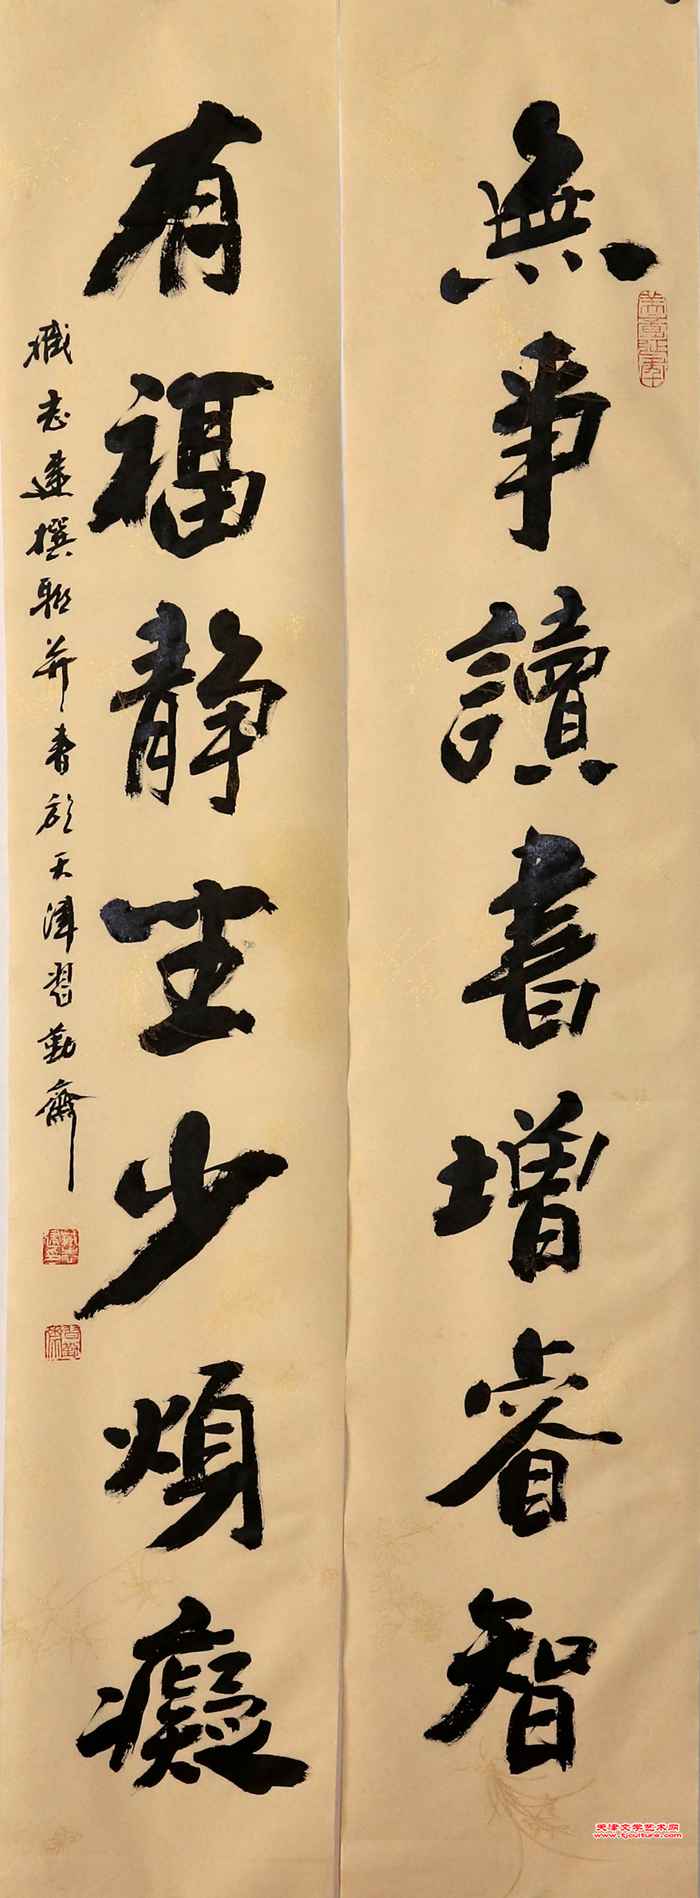 無事讀書增睿智
有福静坐少煩癡
臧志建撰聯并書於天津習勤齋
天津文学艺术网
www.tjculture.com